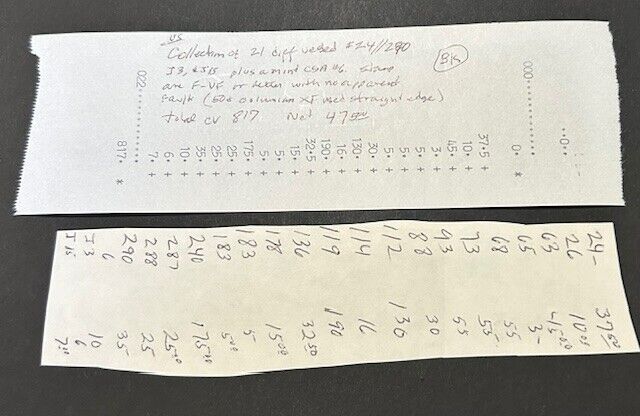 US
Collection of 21 diff used #24//290
J3, & J15 plus a mint CSA #6. Stamps
are F-VF or better with no apparent
fault (50¢ columbian XF used straight edge)
Total cv 817 Net 47
BK
000
0· *
37·5 +
10· +
45· +
3· +
5· +
5· +
5· +
30· +
130· +
16· +
190· +
32·5 +
15· +
5· +
5· +
175· +
25· +
25· +
35· +
10· +
6· +
7· +
022
817· *
24- 37 50
26 10 00
63 45 00
65 3-
68
73
93
88 30
112 130
114 16
119 190
136 32 50
178 15 00
183 5-
183 5 00
240 175
287 25
288 25
290 35
6 10
J3 6
J15 7